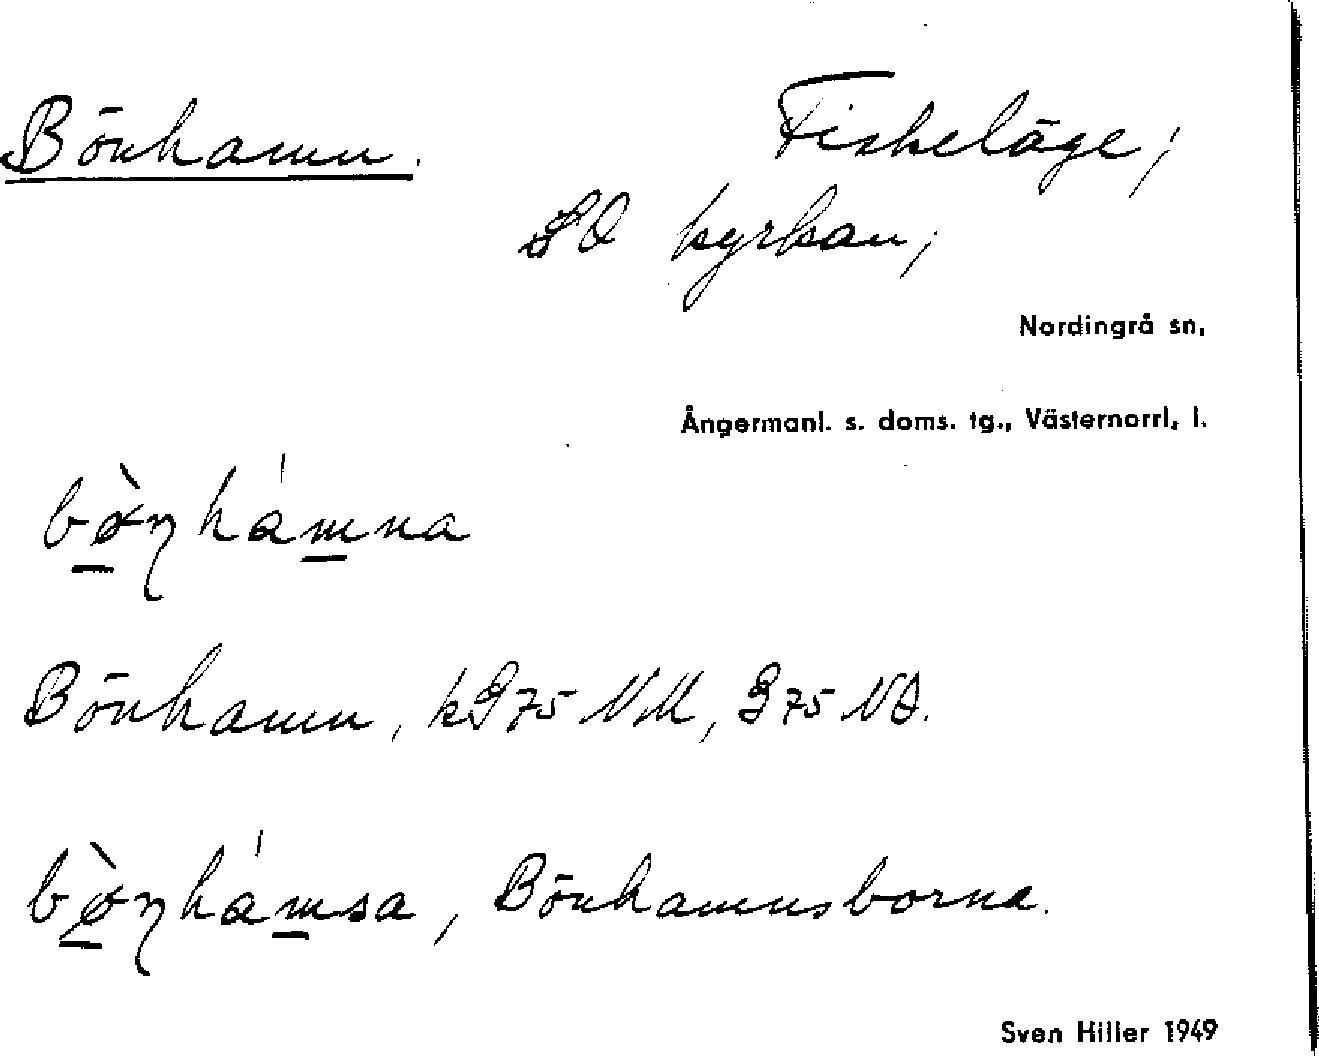 Bönhamn. Fiskeläge;
SO kyrkan;
Nordingrå sn,
Ångermanl. s. doms. tg., Västernorrl. l.
bø̀ŋhámna
Bönhamn, kG75 NM, G75 NO.
bø̀ŋhámsa, Bönhamnsborna.
Sven Hiller 1949